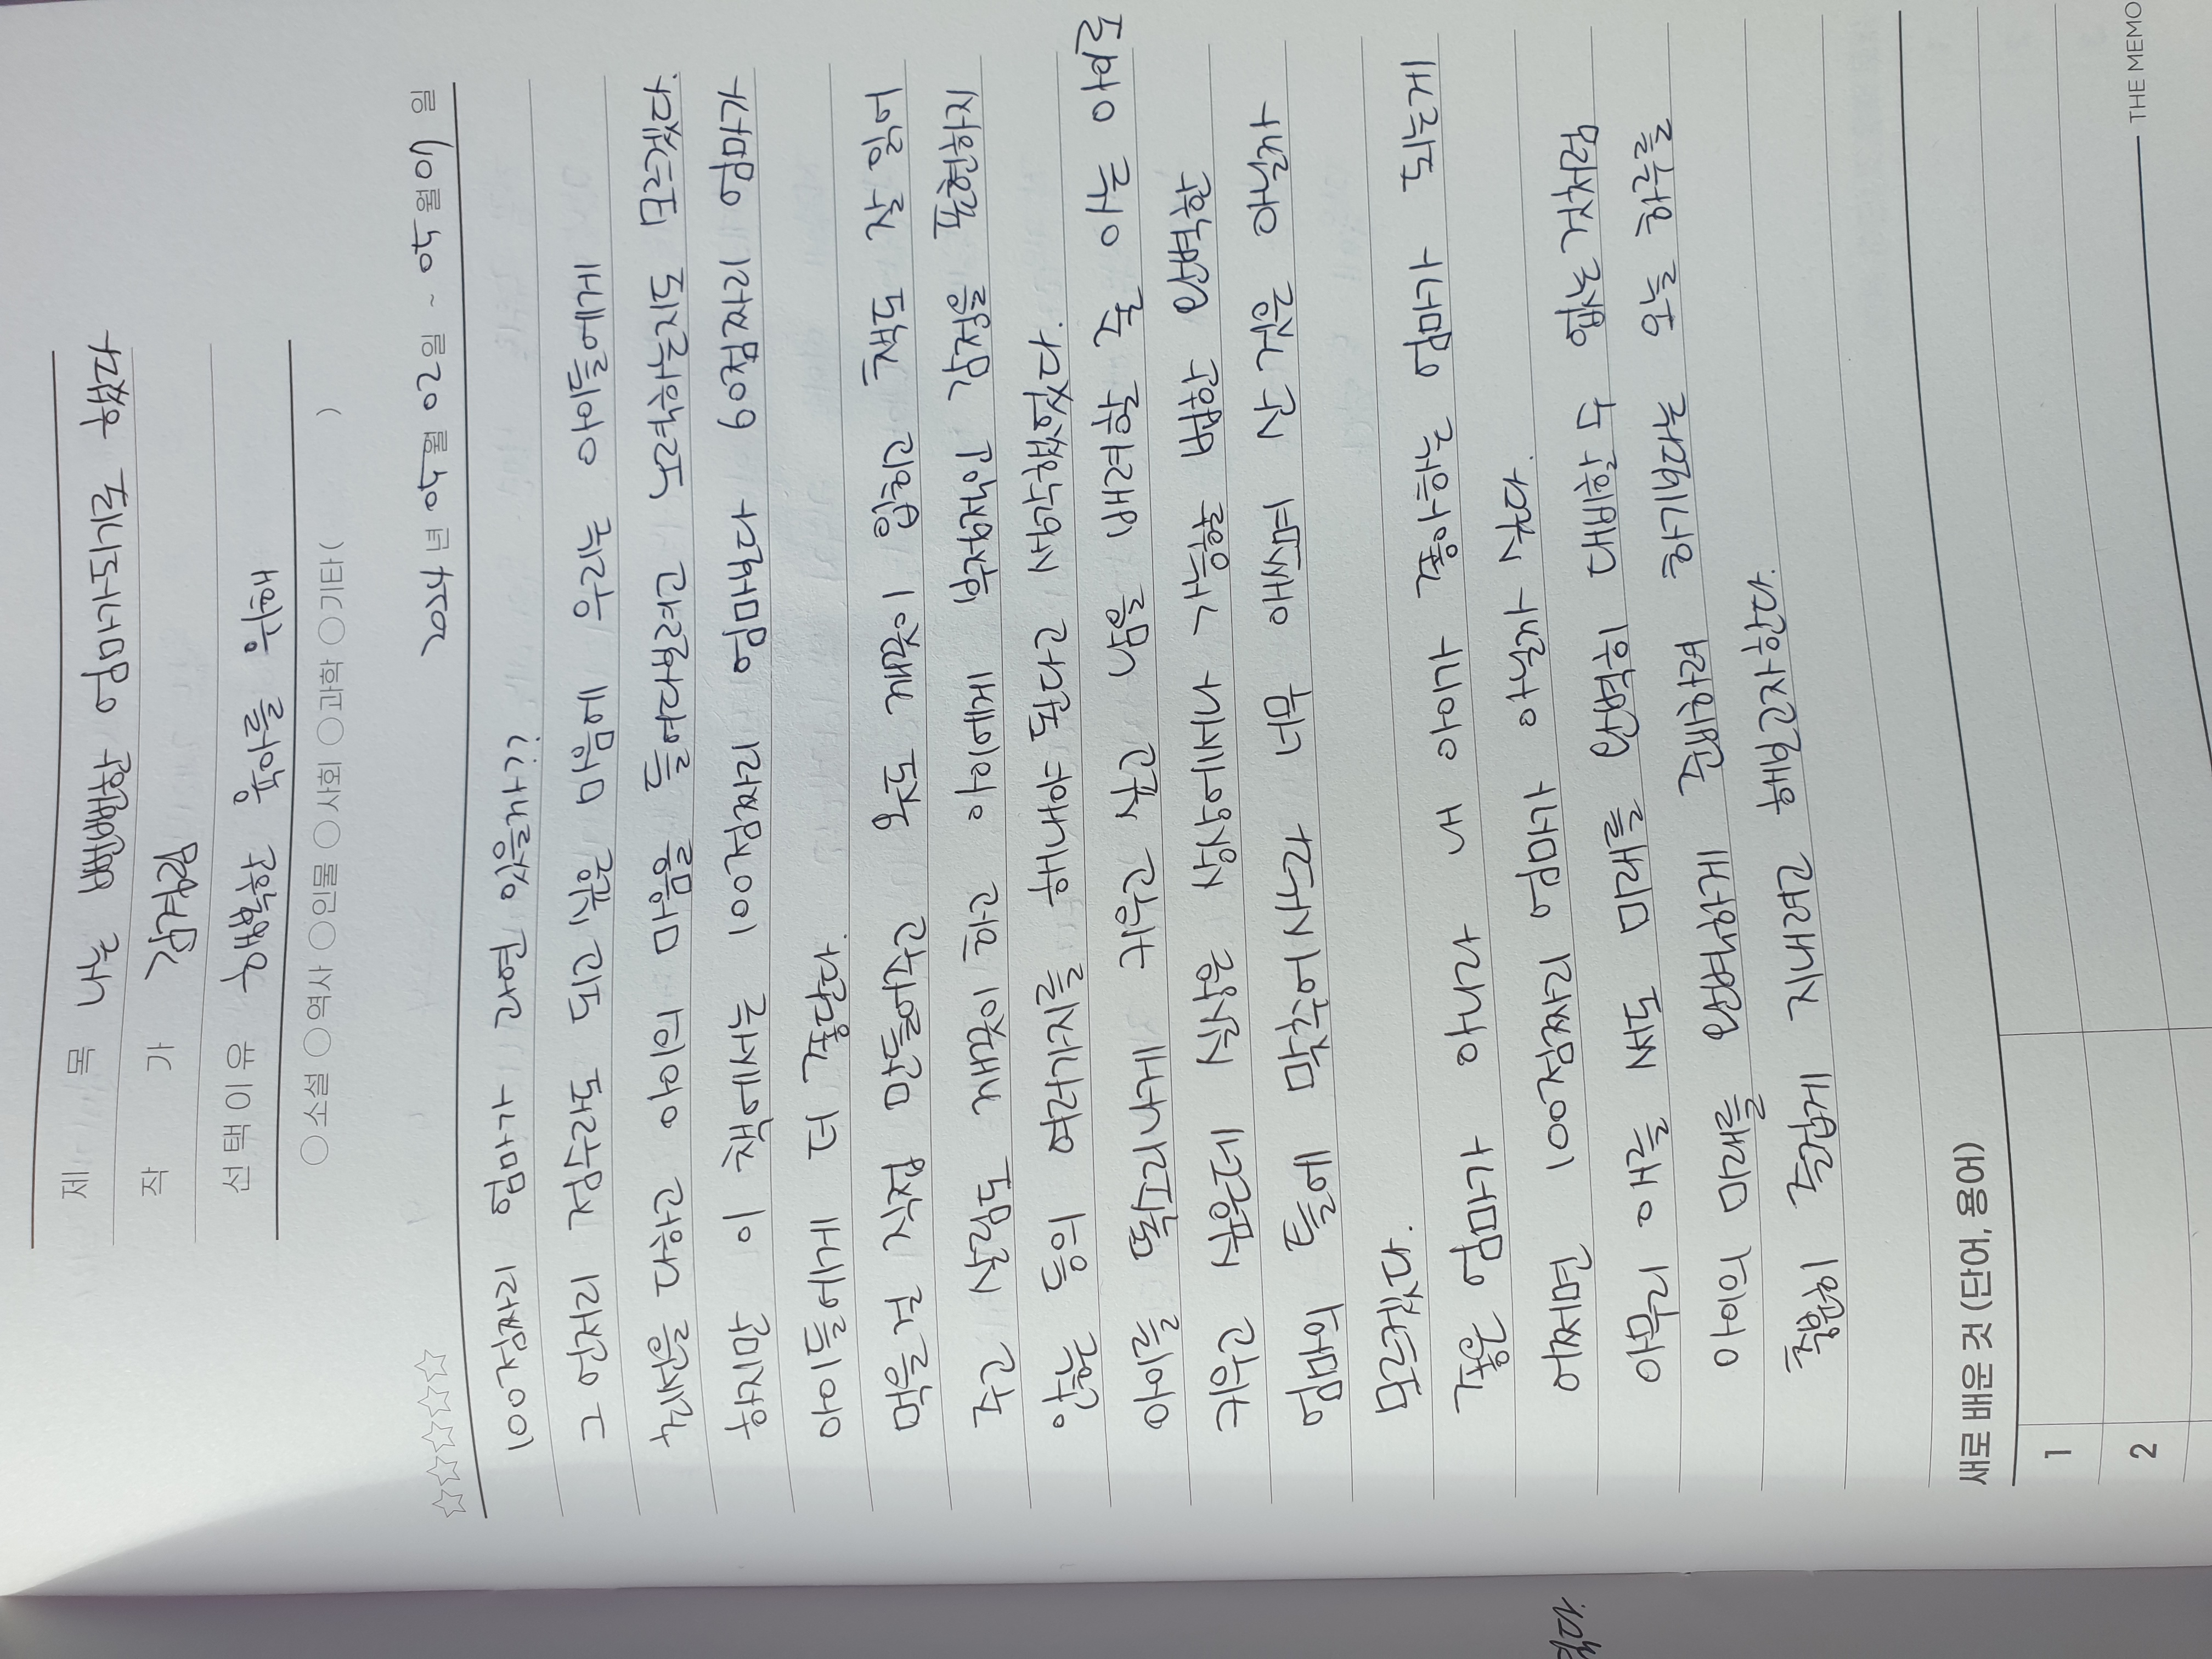 제 목 나는 뻔뻔한 엄마가되기로 했다
작 가 김경림
선택이유 행복한 육아를 위해
○소설 ○역사 ○인물 ○사회 ○과학 ○기타( )
☆☆☆☆☆ 2024년 05월 02일 ~ 05월 07일
100점짜리 엄마가 과연 있을까??
그 언저리 점수라도 되고 싶은 마음에 우리는 아이들에게
최선을 다하고 아이의 마음을 들여다보려고 노력하는지도 모르겠다.
하지만 이 책에서는 100점짜리 엄마보다 60점짜리 엄마가
아이들에게 더 좋단다.
먹을걸 직접 만들어주고 옷도 깨끗이 입히고 책도 잘 읽어
주고 살림도 깨끗이 하고 아이에게 부정적인 감정을 표현하지
않는 등의 여러가지를 해내야 된다고 생각했었다.
아이를 똑소리나게 키우고 싶고 남을 배려할 줄 아는 아이로
키우고 싶은데 실상은 상상에서나 가능할 법한 완벽한
엄마의 틀에 맞추어사느라 너무 애쓰며 산 것은 아닐까
모르겠다.
좋은 엄마가 아니라 내 아이가 좋아하는 엄마가 되는게
어쩌면 100점짜리 엄마가 아닐까 싶다.
아무리 애를 써도 미래를 완벽히 대비할 수 없는 것처럼
아이의 미래를 완벽하게 준비하려 하기보다는 오늘 하루를
충분히 즐겁게 지내려고 해보고자한다.
새로 배운 것 (단어, 용어)
1
2
THE MEMO